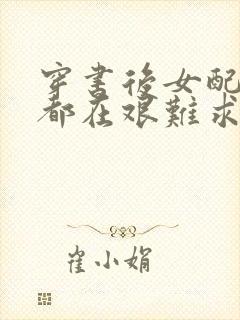 穿書後女配
都在艱難求
崔小娟